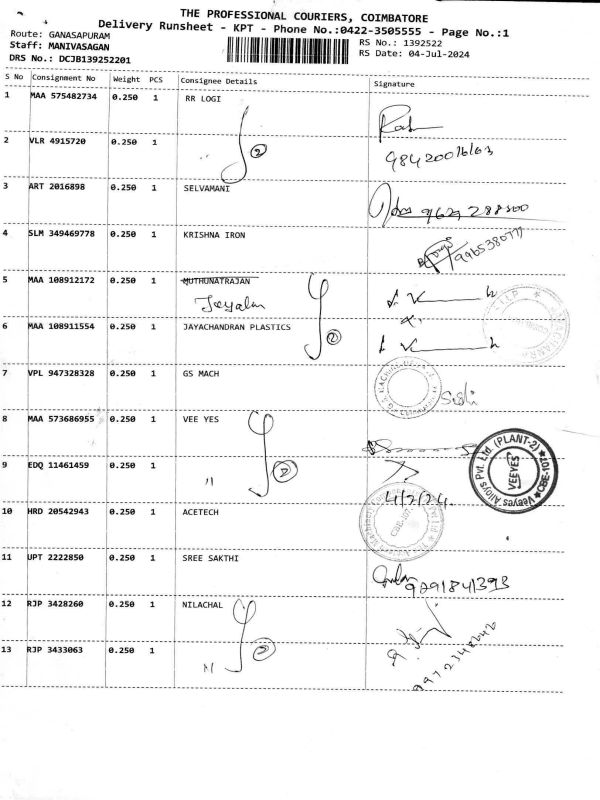 THE PROFESSIONAL COURIERS, COIMBATORE
Delivery Runsheet - KPT - Phone No.:0422-3505555 - Page No.:1
Route: GANASAPURAM
RS No.: 1392522
Staff: MANIVASAGAN
RS Date: 04-Jul-2024
DRS No.: DCJB139252201
S No Consignment No Weight PCS Consignee Details Signature
1 MAA 575482734 0.250 1 RR LOGI
2 VLR 4915720 0.250 1 " 2
9842001663
3 ART 2016898 0.250 1 SELVAMANI
9629 288500
4 SLM 349469778 0.250 1 KRISHNA IRON
9965380777
5 MAA 108912172 0.250 1 MUTHUNATRAJAN
Jayalan
6 MAA 108911554 0.250 1 JAYACHANDRAN PLASTICS 2
7 VPL 947328328 0.250 1 GS MACH
8 MAA 573686955 0.250 1 VEE YES
Veeyes Alloys Pvt. Ltd (PLANT-2) CBE-107
VEEYES
9 EDQ 11461459 0.250 1 " 2
4/7/24.
10 HRD 20542943 0.250 1 ACETECH
CBE-107
11 UPT 2222850 0.250 1 SREE SAKTHI
9291841393
12 RJP 3428260 0.250 1 NILACHAL
13 RJP 3433063 0.250 1 " 2